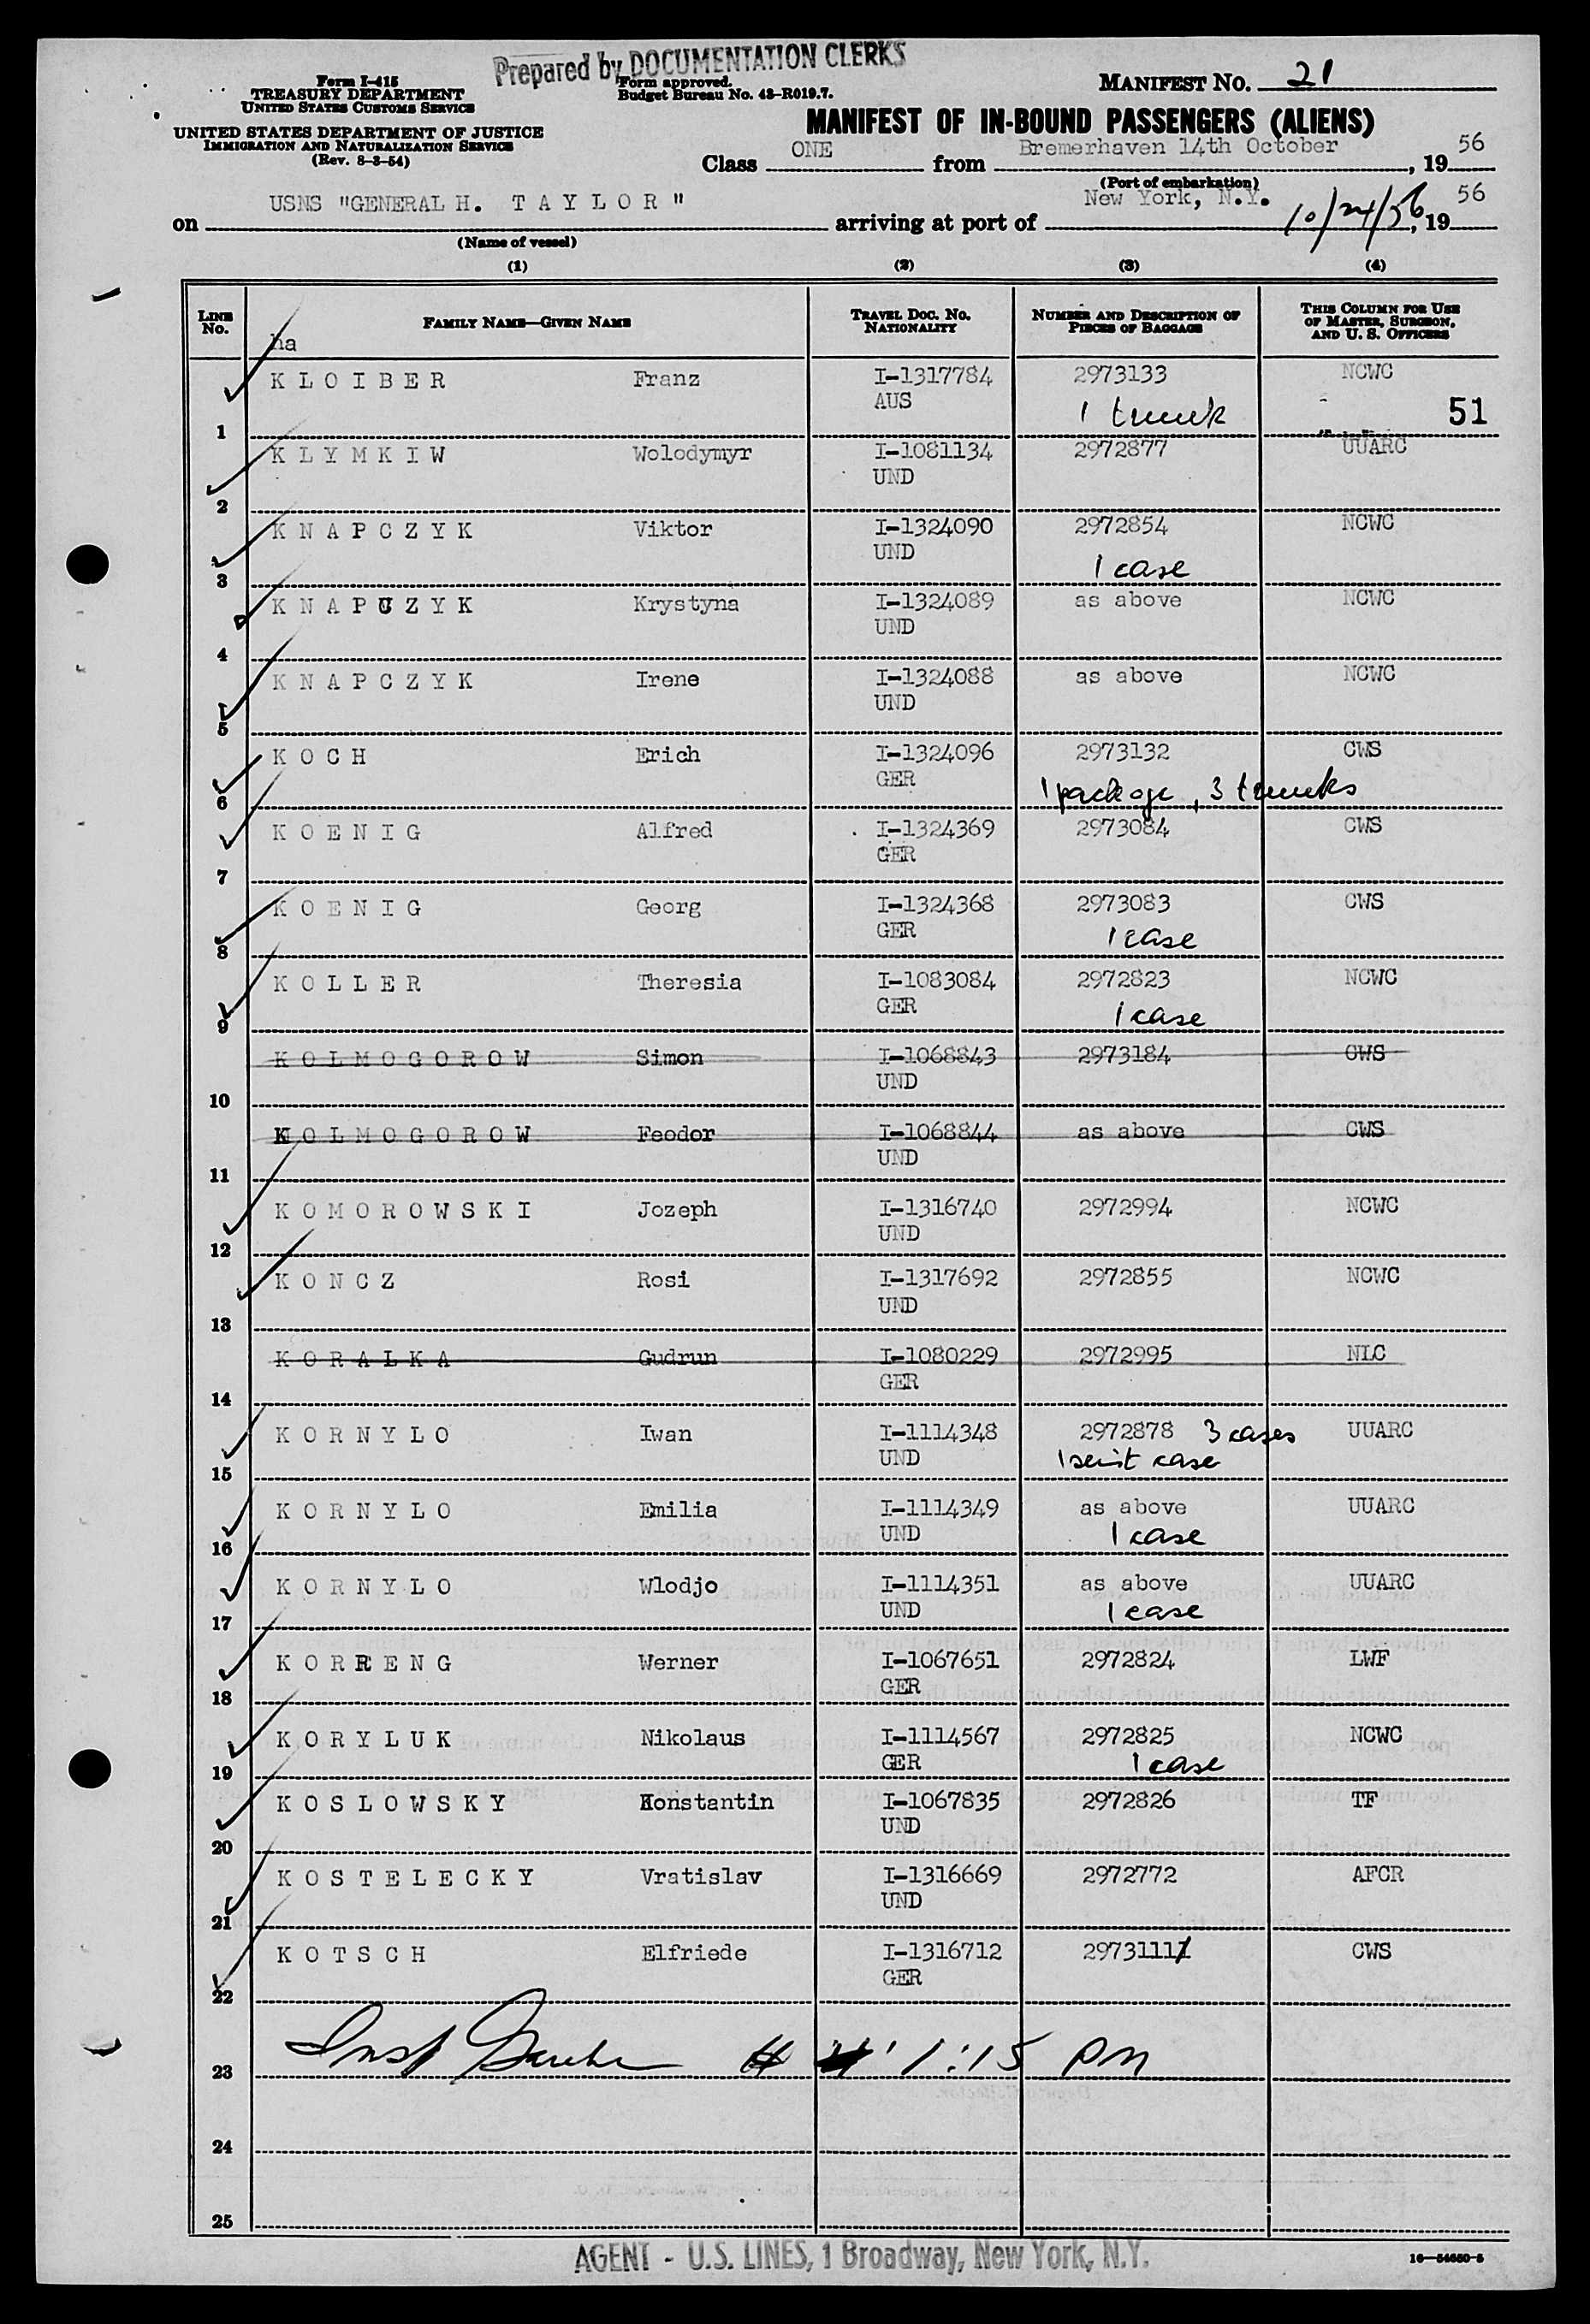 Prepared by DOCUMENTATION CLERKS
Form I-415
TREASURY DEPARTMENT
UNITED STATES CUSTOMS SERVICE
Form approved.
Budget Bureau No. 43-R019.7.
MANIFEST NO. 21
UNITED STATES DEPARTMENT OF JUSTICE
IMMIGRATION AND NATURALIZATION SERVICE
(Rev. 8-3-54)
MANIFEST OF IN-BOUND PASSENGERS (ALIENS)
Class ONE from Bremerhaven 14th October, 19 56
(Port of embarkation)
on USNS "GENERAL H. T A Y L O R " arriving at port of New York, N.Y. 10/24/56, 19 56
(Name of vessel)
(1) (2) (3) (4)
LINE No. FAMILY NAME—GIVEN NAME TRAVEL DOC. NO. NATIONALITY NUMBER AND DESCRIPTION OF PIECES OF BAGGAGE THIS COLUMN FOR USE OF MASTER, SURGEON, AND U. S. OFFICERS
ha
K L O I B E R Franz I-1317784 2973133 NCWC
AUS 1 trunk 51
1
K L Y M K I W Wolodymyr I-1081134 2972877 UUARC
UND
2
K N A P C Z Y K Viktor I-1324090 2972854 NCWC
UND 1 case
3
K N A P C Z Y K Krystyna I-1324089 as above NCWC
UND
4
K N A P C Z Y K Irene I-1324088 as above NCWC
UND
5
K O C H Erich I-1324096 2973132 CWS
GER 1 package, 3 trunks
6
K O E N I G Alfred I-1324369 2973084 CWS
GER
7
K O E N I G Georg I-1324368 2973083 CWS
GER 1 case
8
K O L L E R Theresia I-1083084 2972823 NCWC
GER 1 case
9
K O L M O G O R O W Simon I-1068843 2973184 CWS
UND
10
K O L M O G O R O W Feodor I-1068844 as above CWS
UND
11
K O M O R O W S K I Jozeph I-1316740 2972994 NCWC
UND
12
K O N C Z Rosi I-1317692 2972855 NCWC
UND
13
K O R A L K A Gudrun I-1080229 2972995 NLC
GER
14
K O R N Y L O Iwan I-1114348 2972878 3 cases UUARC
UND 1 suit case
15
K O R N Y L O Emilia I-1114349 as above UUARC
UND 1 case
16
K O R N Y L O Wlodjo I-1114351 as above UUARC
UND 1 case
17
K O R R E N G Werner I-1067651 2972824 LWF
GER
18
K O R Y L U K Nikolaus I-1114567 2972825 NCWC
GER 1 case
19
K O S L O W S K Y Konstantin I-1067835 2972826 TF
UND
20
K O S T E L E C K Y Vratislav I-1316669 2972772 AFCR
UND
21
K O T S C H Elfriede I-1316712 2973111 CWS
GER
22
Insp 1:15 PM
23
24
25
AGENT - U.S. LINES, 1 Broadway, New York, N.Y.
16—54650-5